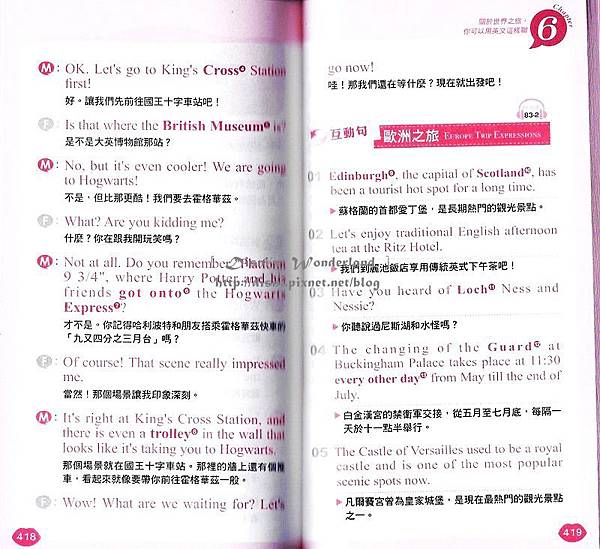 M: OK. Let's go to King's Cross Station
first!
好。讓我們先前往國王十字車站吧！
F: Is that where the British Museum is?
是不是大英博物館那站？
M: No, but it's even cooler! We are going
to Hogwarts!
不是，但比那更酷！我們要去霍格華茲。
F: What? Are you kidding me?
什麼？你在跟我開玩笑嗎？
M: Not at all. Do you remember "Platform
9 3/4", where Harry Potter and his
friends got onto the Hogwarts
Express?
才不是。你記得哈利波特和朋友搭乘霍格華茲快車的
「九又四分之三月台」嗎？
F: Of course! That scene really impressed
me.
當然！那個場景讓我印象深刻。
M: It's right at King's Cross Station, and
there is even a trolley in the wall that
looks like it's taking you to Hogwarts.
那個場景就在國王十字車站。那裡的牆上還有個推
車，看起來就像要帶你前往霍格華茲一般。
F: Wow! What are we waiting for? Let's
418
關於世界之旅，
你可以用英文這樣聊
Chapter
6
go now!
哇！那我們還在等什麼？現在就出發吧！
83-2
互動句 歐洲之旅 EUROPE TRIP EXPRESSIONS
01 Edinburgh, the capital of Scotland, has
been a tourist hot spot for a long time.
▶蘇格蘭的首都愛丁堡，是長期熱門的觀光景點。
02 Let's enjoy traditional English afternoon
tea at the Ritz Hotel.
▶我們到麗池飯店享用傳統英式下午茶吧！
03 Have you heard of Loch Ness and
Nessie?
▶你聽說過尼斯湖和水怪嗎？
04 The changing of the Guard at
Buckingham Palace takes place at 11:30
every other day from May till the end of
July.
▶白金漢宮的禁衛軍交接，從五月至七月底，每隔一
天於十一點半舉行。
05 The Castle of Versailles used to be a royal
castle and is one of the most popular
scenic spots now.
▶凡爾賽宮曾為皇家城堡，是現在最熱門的觀光景點
之一。
419
Wonderland
.pixnet.net/blog